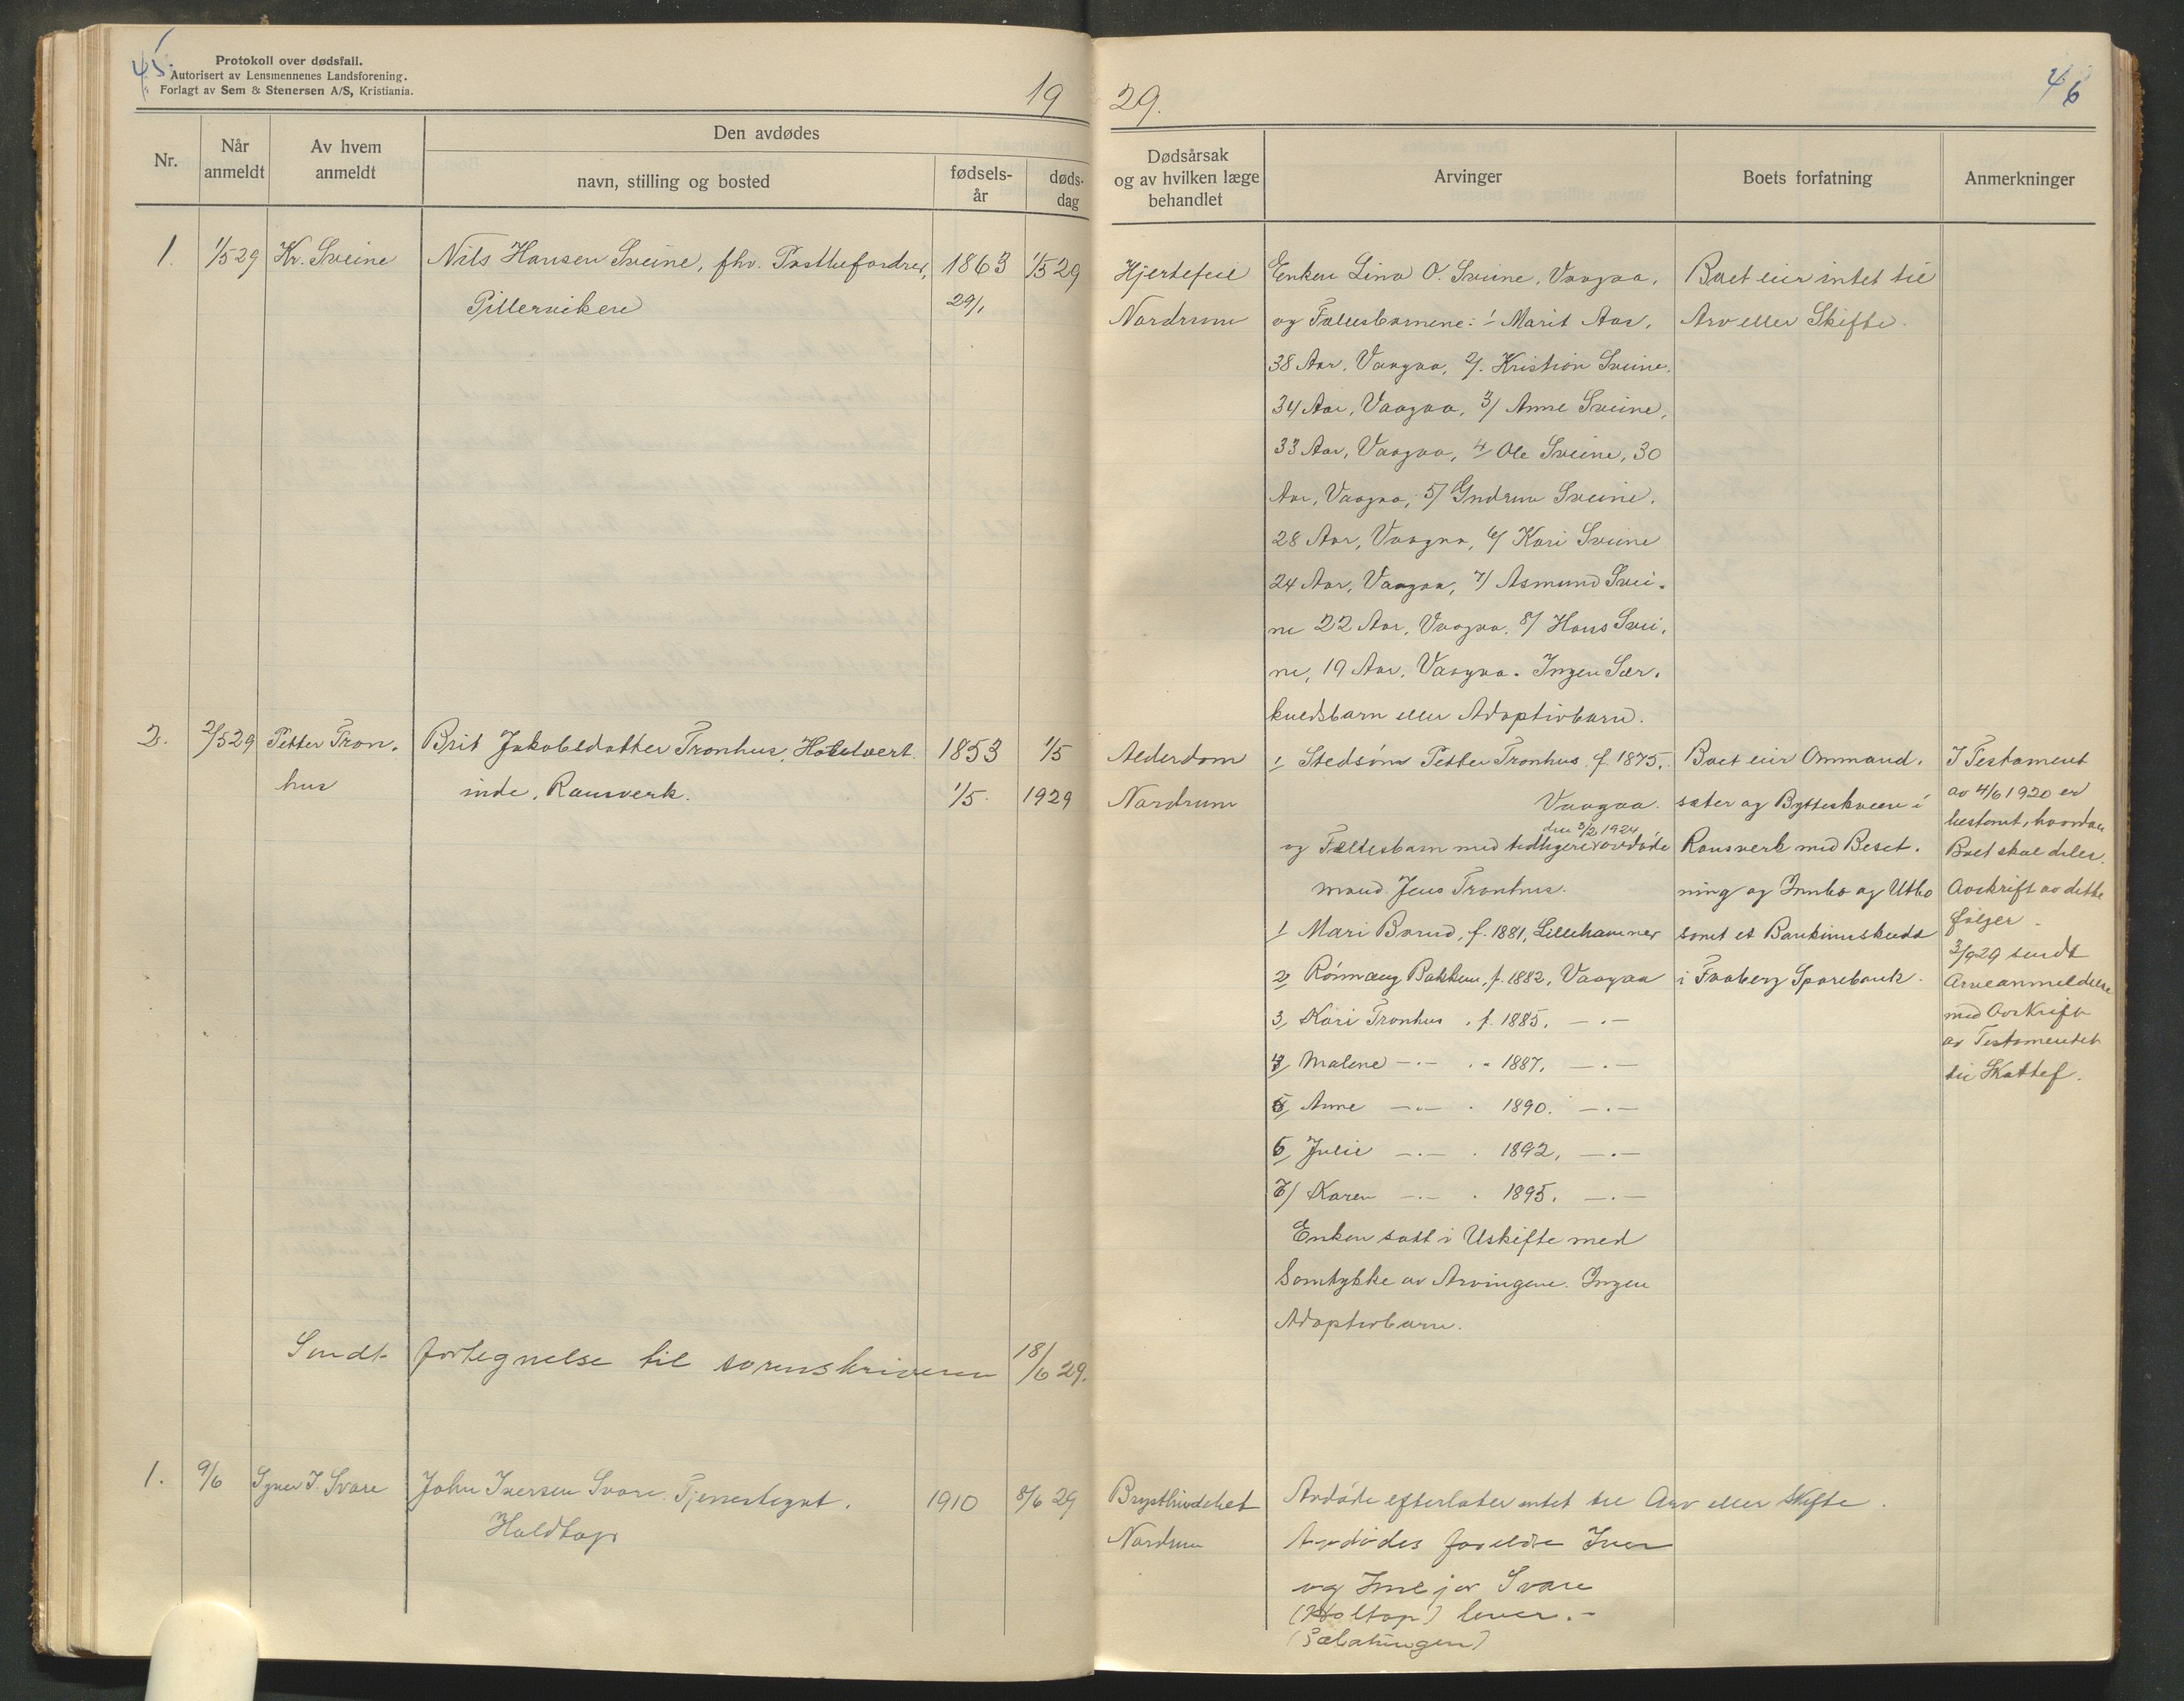 45.
Protokoll over dødsfall.
Autorisert av Lensmennenes Landsforening.
Forlagt av Sem & Stenersen A/S, Kristiania.
19 29.
46
Nr.
Når anmeldt
Av hvem anmeldt
Den avdødes
navn, stilling og bosted
fødsels-år
døds-dag
Dødsårsak og av hvilken læge behandlet
Arvinger
Boets forfatning
Anmerkninger
1. 1/5 29 Kr. Sveine Nils Hansen Sveine, fhv. Postbefordrer, 1863 1/5 29
Pillerviken 29/1
Hjertefeil
Nordrum
Enken Lina O. Sveine, Vaagaa,
og Fællesbarnene: 1/ Marit Aas,
38 Aar, Vaagaa, 2/. Kristian Sveine,
34 Aar, Vaagaa, 3/ Anne Sveine,
33 Aar, Vaagaa, 4/ Ole Sveine, 30
Aar, Vaagaa, 5/ Gudrun Sveine,
28 Aar, Vaagaa, 6/ Kari Sveine
24 Aar, Vaagaa, 7/ Asmund Svei-
ne 22 Aar, Vaagaa, 8/ Hans Svei-
ne, 19 Aar, Vaagaa. Ingen Sær-
kuldsbarn eller Adoptivbarn.
Boet eier intet til
Arv eller Skifte.
2. 2/5 29 Petter Tron- Brit Jakobsdatter Tronhus, Hotelvert- 1853 1/5
hus inde, Randsverk. 1/5 1929
Alderdom
Nordrum
1/ Stedsøn Petter Tronhus, f. 1875,
Vaagaa.
den 3/2 1924
og Fællesbarn med tidligere avdøde
mand Jens Tronhus.
1/ Mari Bərud, f. 1881, Lillehammer
2/ Rønnaug Bakken, f. 1882, Vaagaa
3/ Kari Tronhus, f. 1885, —.—
4/ Malene —.— . " 1887, —.—
5/ Anne —.— . 1890. —.—
6/ Julie —.— . 1892, —.—
7/ Karen —.— . 1895, —.—
Enken satt i Uskifte med
Samtykke av Arvingene. Ingen
Adoptivbarn.
Boet eier Ommand-
sæter og Bytteskveen i
Randsverk med Beset-
ning og Innbo og Utbo
samt et Bankinnskudd
i Faaberg Sparebank.
I Testament
av 4/6 1920 er
bestemt, hvordan
Boet skal deles.
Avskrift av dette
følger.
3/9 29 sendt
Arveanmeldelse
med Avskrift
av Testamentet
til Skattef.
Sendt fortegnelse til sorenskriveren 18/6 29.
1. 9/6 Syver I. Svare John Iversen Svare. Tjenestegut, 1910 8/6 29
Holdtop
Brysthindebet.
Nordrum
Avdøde efterlater intet til Arv eller Skifte.
Avdødes foreldre Iver
og Svare
(Holtop) lever.-